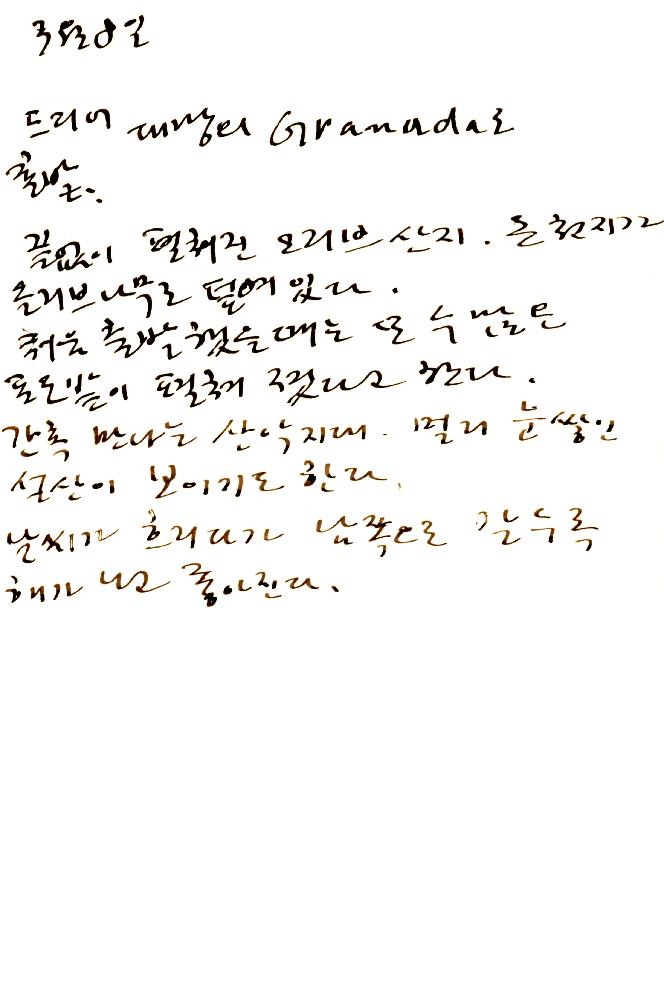 3월 8일
드디어 대망의 Granada로
출발.
끝없이 펼쳐진 오리브 산지. 온 천지가
올리브나무로 덮여 있다.
처음 출발했을때는 또 수많은
포도밭이 펼쳐 졌다고 한다.
간혹 만나는 산악지대. 멀리 눈쌓인
설산이 보이기도 한다.
날씨가 흐리다가 남쪽으로 갈수록
해가 나고 좋아진다.